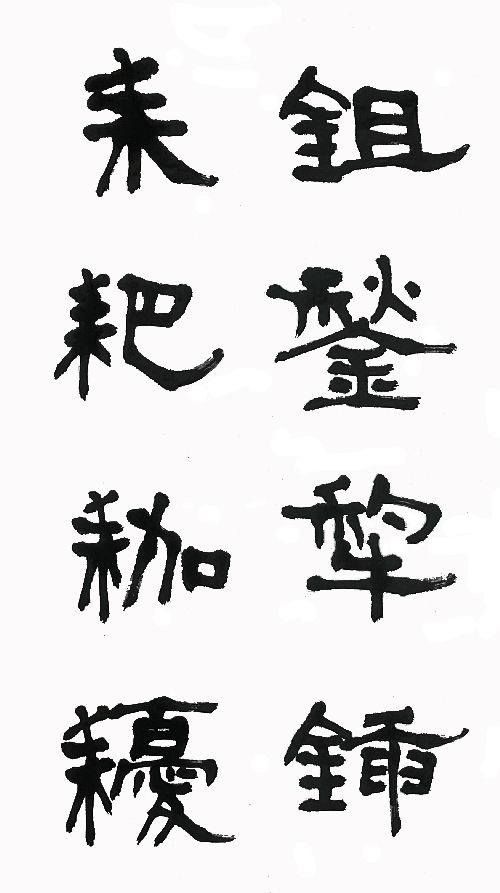 鉏鍫犂鍤
耒耙耞耰